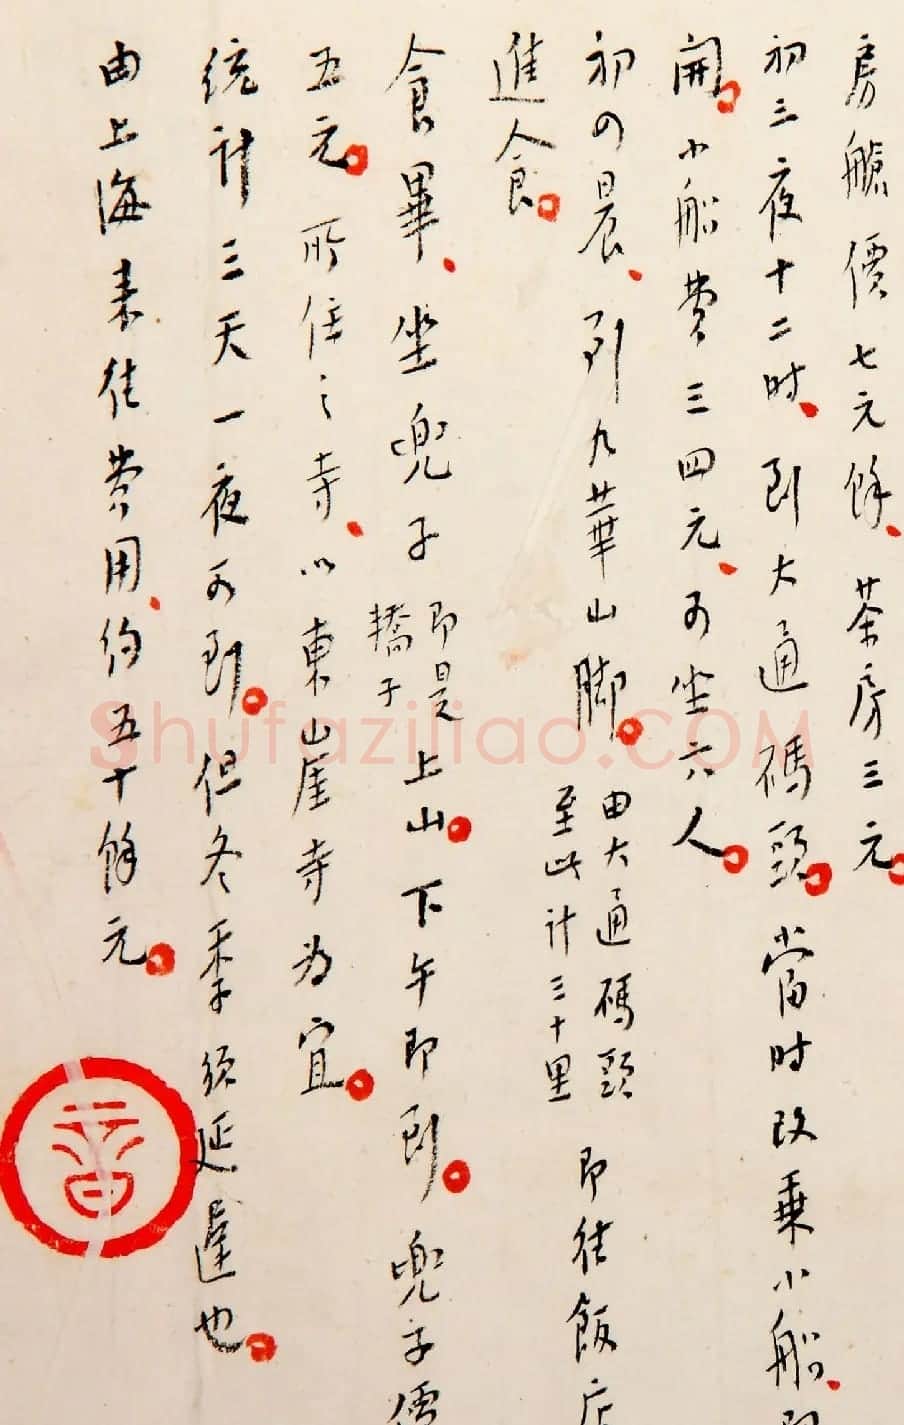 房艙價七元餘、茶房三元。
初三夜十二时、到大通碼頭。當时改乘小船、即
開。小船費三四元、可坐六人。
初四晨、到九華山脚。由大通碼頭至此計三十里 即往飯店
進食。
食畢、坐兜子 即是轎子 上山。下午即到。兜子價
五元。所住之寺、以東山崖寺為宜。
统计三天一夜可到。但冬季须延遲也。
由上海来往費用、约五十餘元。
Shufaziliao.COM